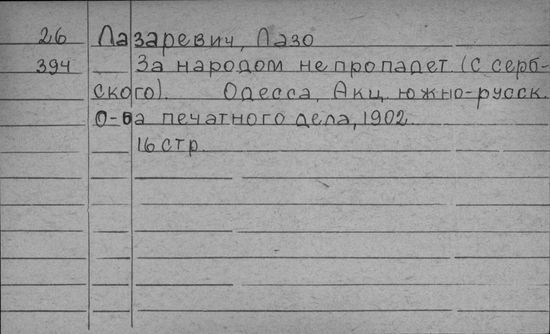 26 Лазаревич, Лазо
394 За народом не пропадет (с серб-
ского). Одесса, Акц. южно-русск.
О-ва печатного дела, 1902.
16 стр